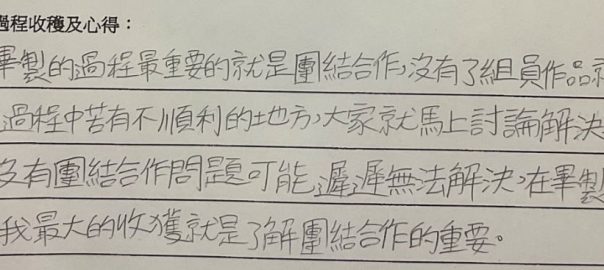 過程收穫及心得：
畢製的過程最重要的就是團結合作，沒有了組員作品就
過程中苦有不順利的地方，大家就馬上討論解決
沒有團結合作問題可能遲遲無法解決，在畢製
我最大的收獲就是了解團結合作的重要。